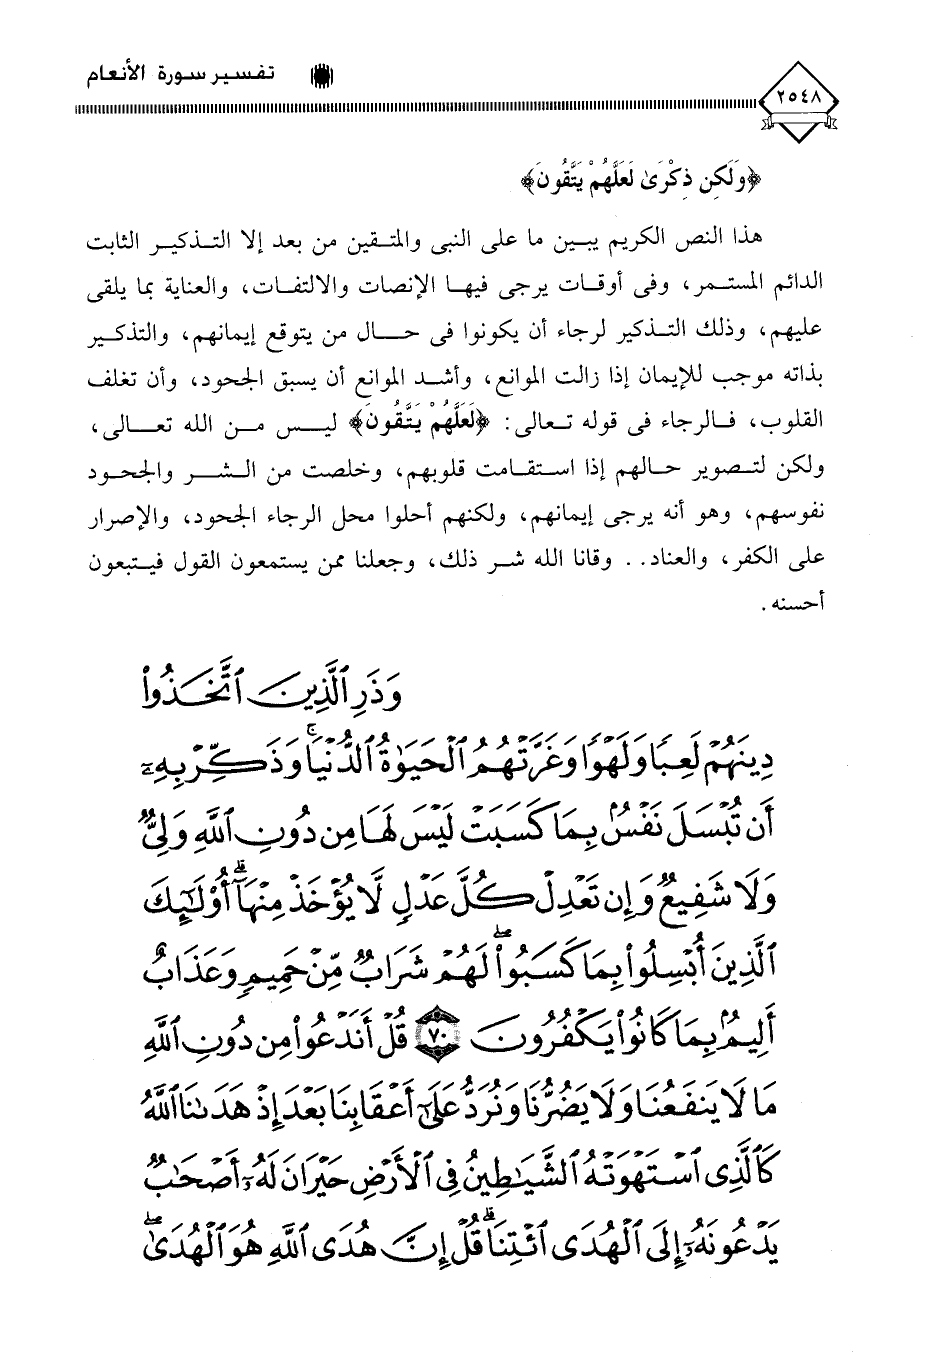 تفسير سورة الأنعام
٢٥٤٨
﴿وَلَٰكِن ذِكْرَىٰ لَعَلَّهُمْ يَتَّقُونَ﴾
هذا النص الكريم يبين ما على النبى والمتقين من بعد إلا التذكير الثابت
الدائم المستمر، وفى أوقات يرجى فيها الإنصات والالتفات، والعناية بما يلقى
عليهم، وذلك التذكير لرجاء أن يكونوا فى حال من يتوقع إيمانهم، والتذكير
بذاته موجب للإيمان إذا زالت الموانع، وأشد الموانع أن يسبق الجحود، وأن تغلف
القلوب، فالرجاء فى قوله تعالى: ﴿لَعَلَّهُمْ يَتَّقُونَ﴾ ليس من الله تعالى،
ولكن لتصوير حالهم إذا استقامت قلوبهم، وخلصت من الشر والجحود
نفوسهم، وهو أنه يرجى إيمانهم، ولكنهم أحلوا محل الرجاء الجحود، والإصرار
على الكفر، والعناد.. وقانا الله شر ذلك، وجعلنا ممن يستمعون القول فيتبعون
أحسنه.
وَذَرِ ٱلَّذِينَ ٱتَّخَذُوا۟
دِينَهُمْ لَعِبًا وَلَهْوًا وَغَرَّتْهُمُ ٱلْحَيَوٰةُ ٱلدُّنْيَا ۚ وَذَكِّرْ بِهِۦٓ
أَن تُبْسَلَ نَفْسٌۢ بِمَا كَسَبَتْ لَيْسَ لَهَا مِن دُونِ ٱللَّهِ وَلِىٌّ
وَلَا شَفِيعٌ وَإِن تَعْدِلْ كُلَّ عَدْلٍ لَّا يُؤْخَذْ مِنْهَآ ۗ أُو۟لَٰٓئِكَ
ٱلَّذِينَ أُبْسِلُوا۟ بِمَا كَسَبُوا۟ ۖ لَهُمْ شَرَابٌ مِّنْ حَمِيمٍ وَعَذَابٌ
أَلِيمٌۢ بِمَا كَانُوا۟ يَكْفُرُونَ ٧٠ قُلْ أَنَدْعُوا۟ مِن دُونِ ٱللَّهِ
مَا لَا يَنفَعُنَا وَلَا يَضُرُّنَا وَنُرَدُّ عَلَىٰٓ أَعْقَابِنَا بَعْدَ إِذْ هَدَىٰنَا ٱللَّهُ
كَٱلَّذِى ٱسْتَهْوَتْهُ ٱلشَّيَٰطِينُ فِى ٱلْأَرْضِ حَيْرَانَ لَهُۥٓ أَصْحَٰبٌ
يَدْعُونَهُۥٓ إِلَى ٱلْهُدَى ٱئْتِنَا ۗ قُلْ إِنَّ هُدَى ٱللَّهِ هُوَ ٱلْهُدَىٰ ۖ